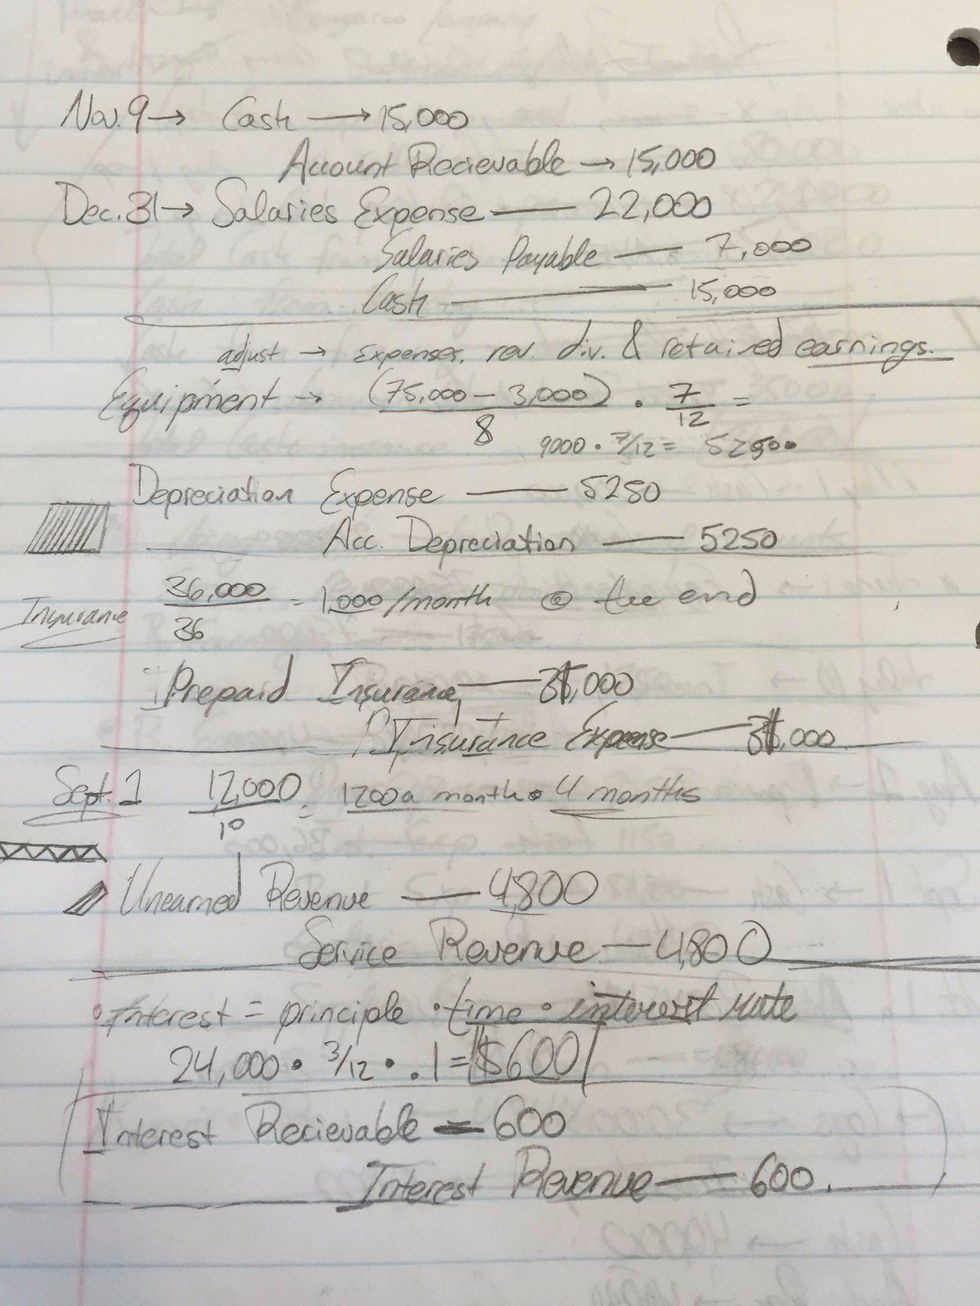 Nov. 9 → Cash → 15,000
Account Recievable → 15,000
Dec. 31 → Salaries Expense — 22,000
Salaries Payable — 7,000
Cash — 15,000
adjust → expenses, rev. div. & retained earnings.
Equipment → (75,000 - 3,000) / 8 · 7/12 =
9000 · 7/12 = 5250.
Depreciation Expense — 5250
Acc. Depreciation — 5250
Insurance 36,000 / 36 = 1,000 / month @ the end
Prepaid Insurance —
Insurance Expense —
Sept. 1 12,000 / 10 = 1200 a month · 4 months
Unearned Revenue — 4,800
Service Revenue — 4,800
Interest = principle · time · interest rate
24,000 · 3/12 · .1 = $600
Interest Recievable — 600
Interest Revenue — 600.